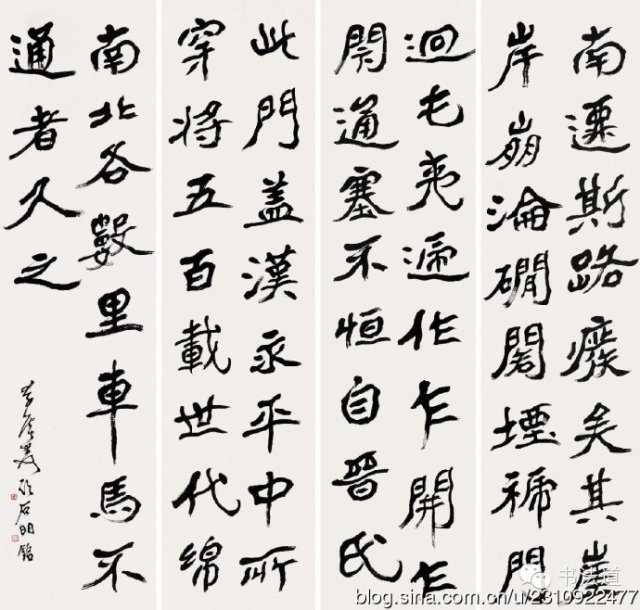 南遷斯路廢矣其崖
岸崩淪磵閣堙褫門
迴屯夷遞作乍開乍
閉通塞不恒自晉氏
此門蓋漢永平中所
穿將五百載世代綿
南北各數里車馬不
通者久之
臨石門銘
书法道
blog.sina.com.cn/u/2310922477